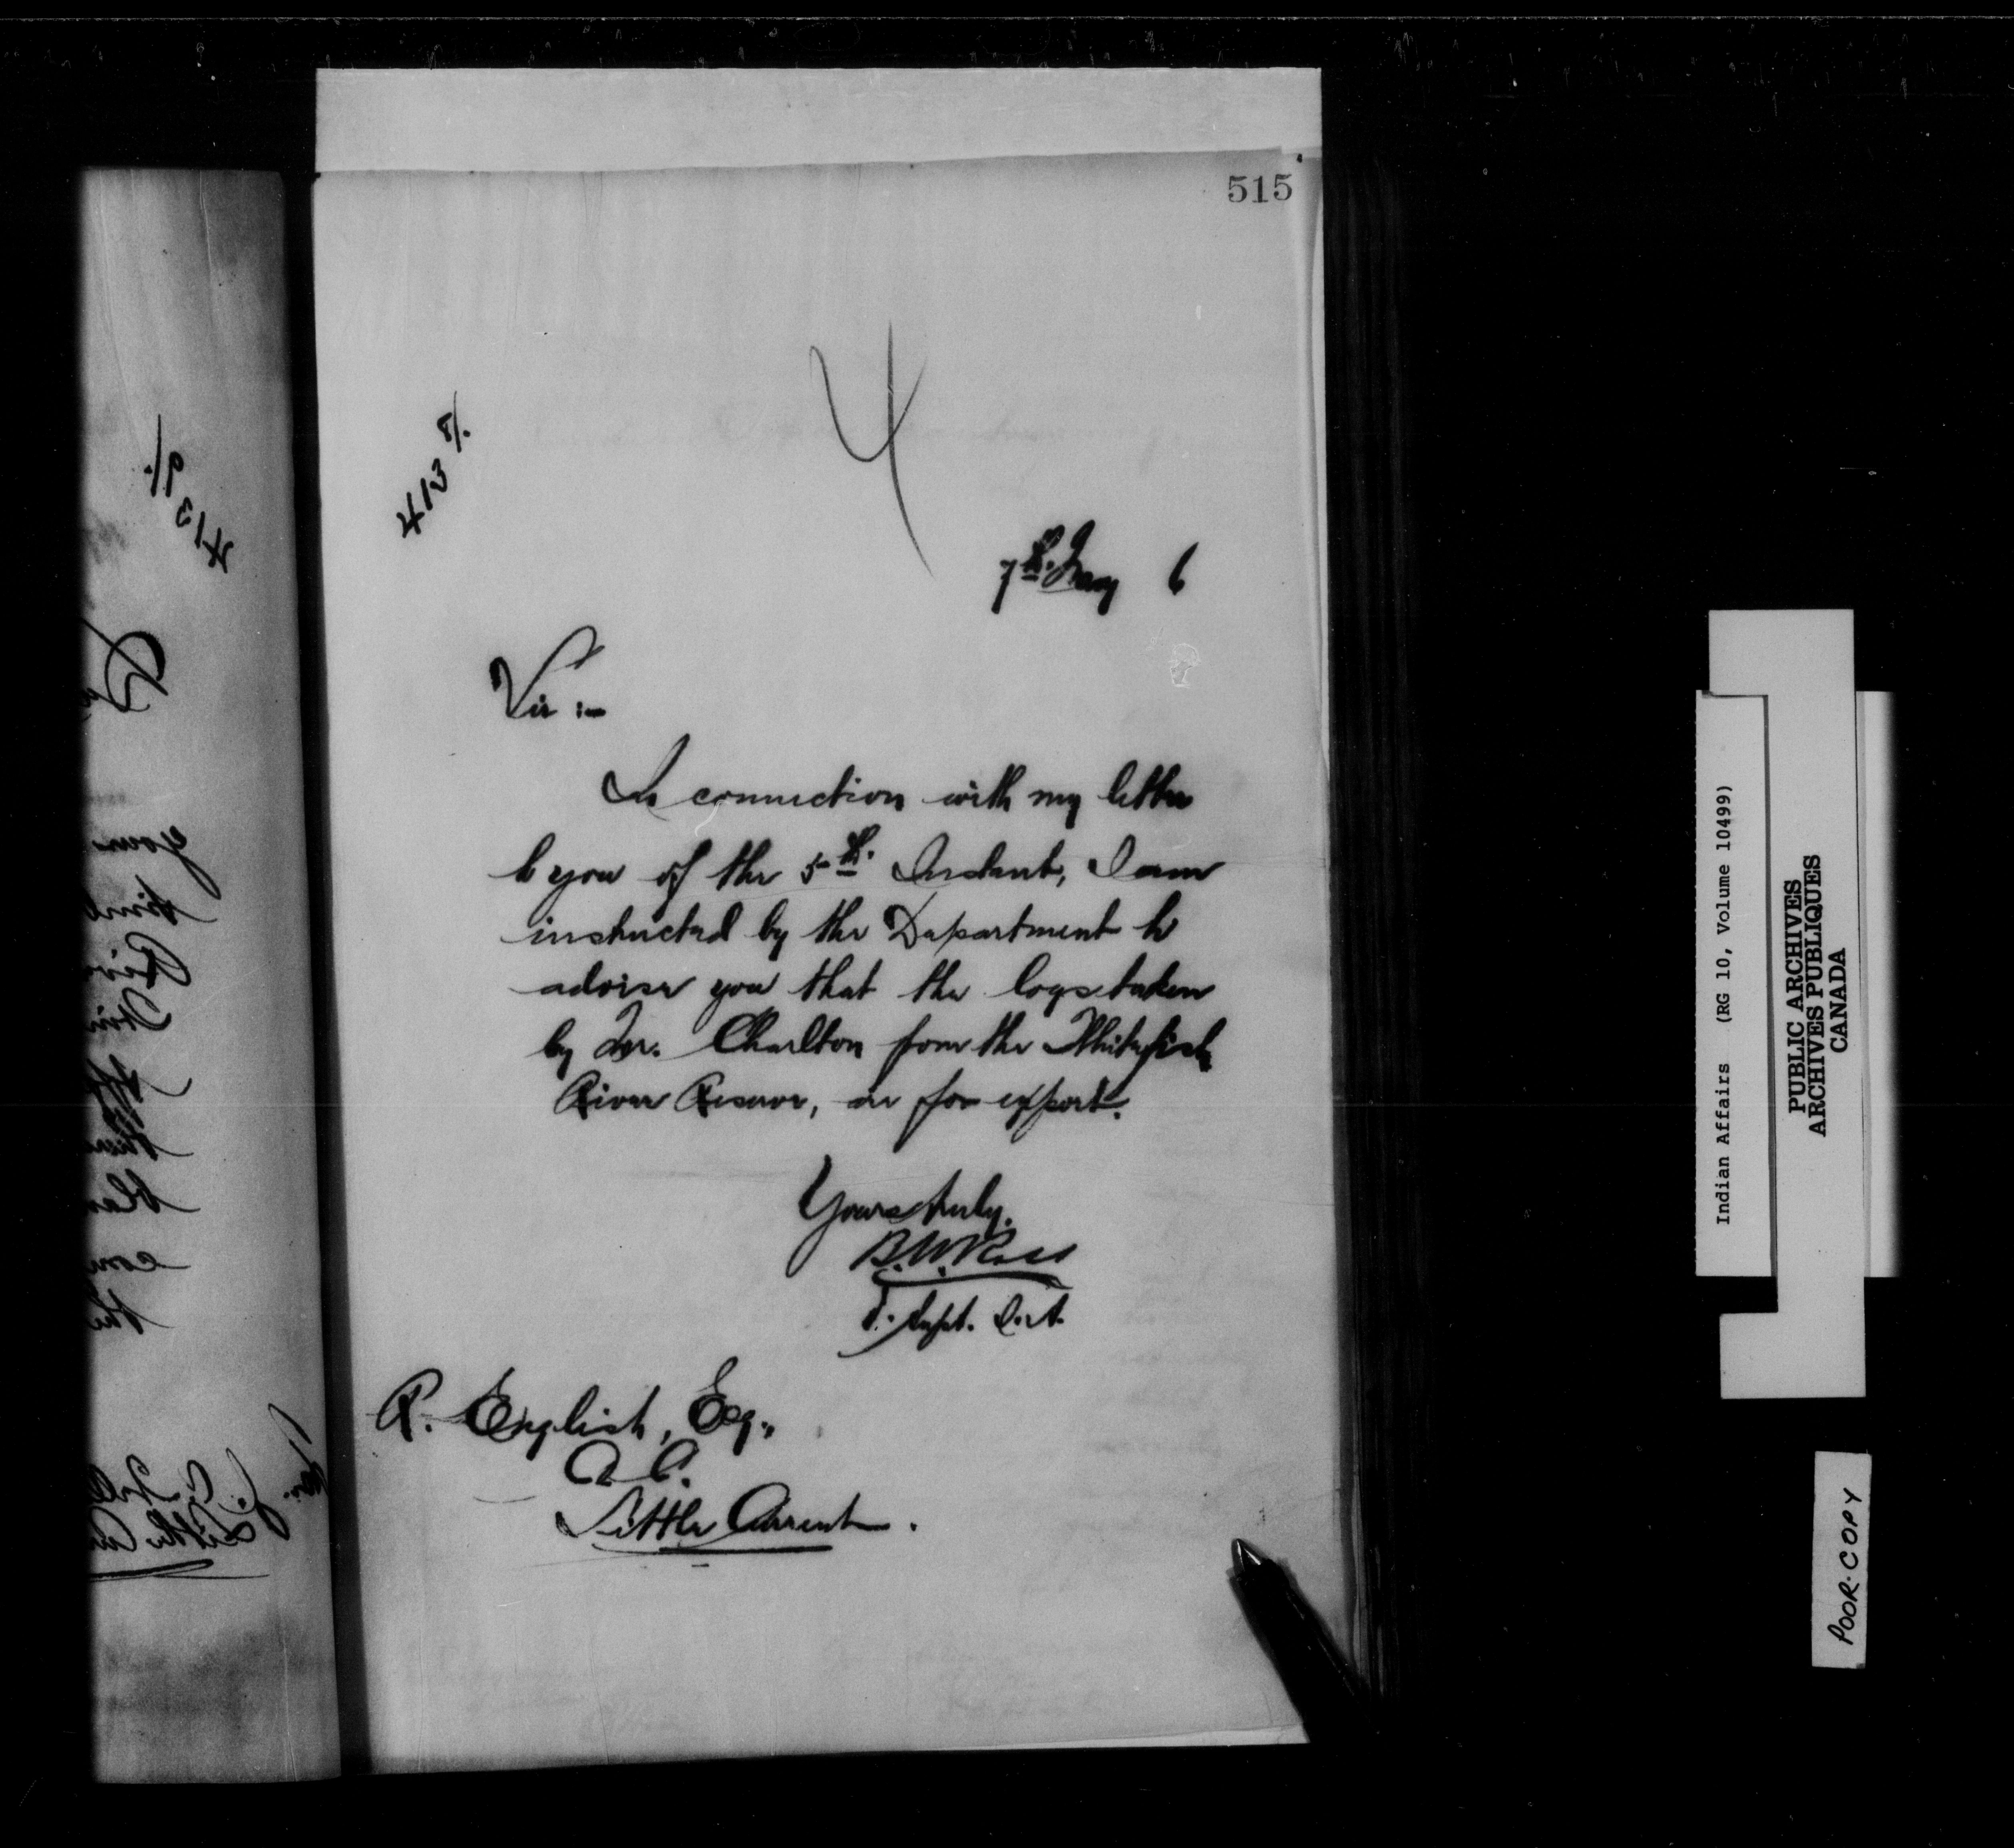 515
4
413 8/.
7th. May 6
Sir :-
In connection with my letter
to you of the 5th. Instant, I am
instructed by the Department to
advise you that the logs taken
by Mr. Charlton from the Whitefish
River Reserve, are for export.
Yours truly,
B. W. Ross
T. Supt. I. A.
R. English, Esq.,
C.
Little Current.
413 9/.
your
the
Indian Affairs (RG 10, Volume 10499)
PUBLIC ARCHIVES
ARCHIVES PUBLIQUES
CANADA
POOR-COPY